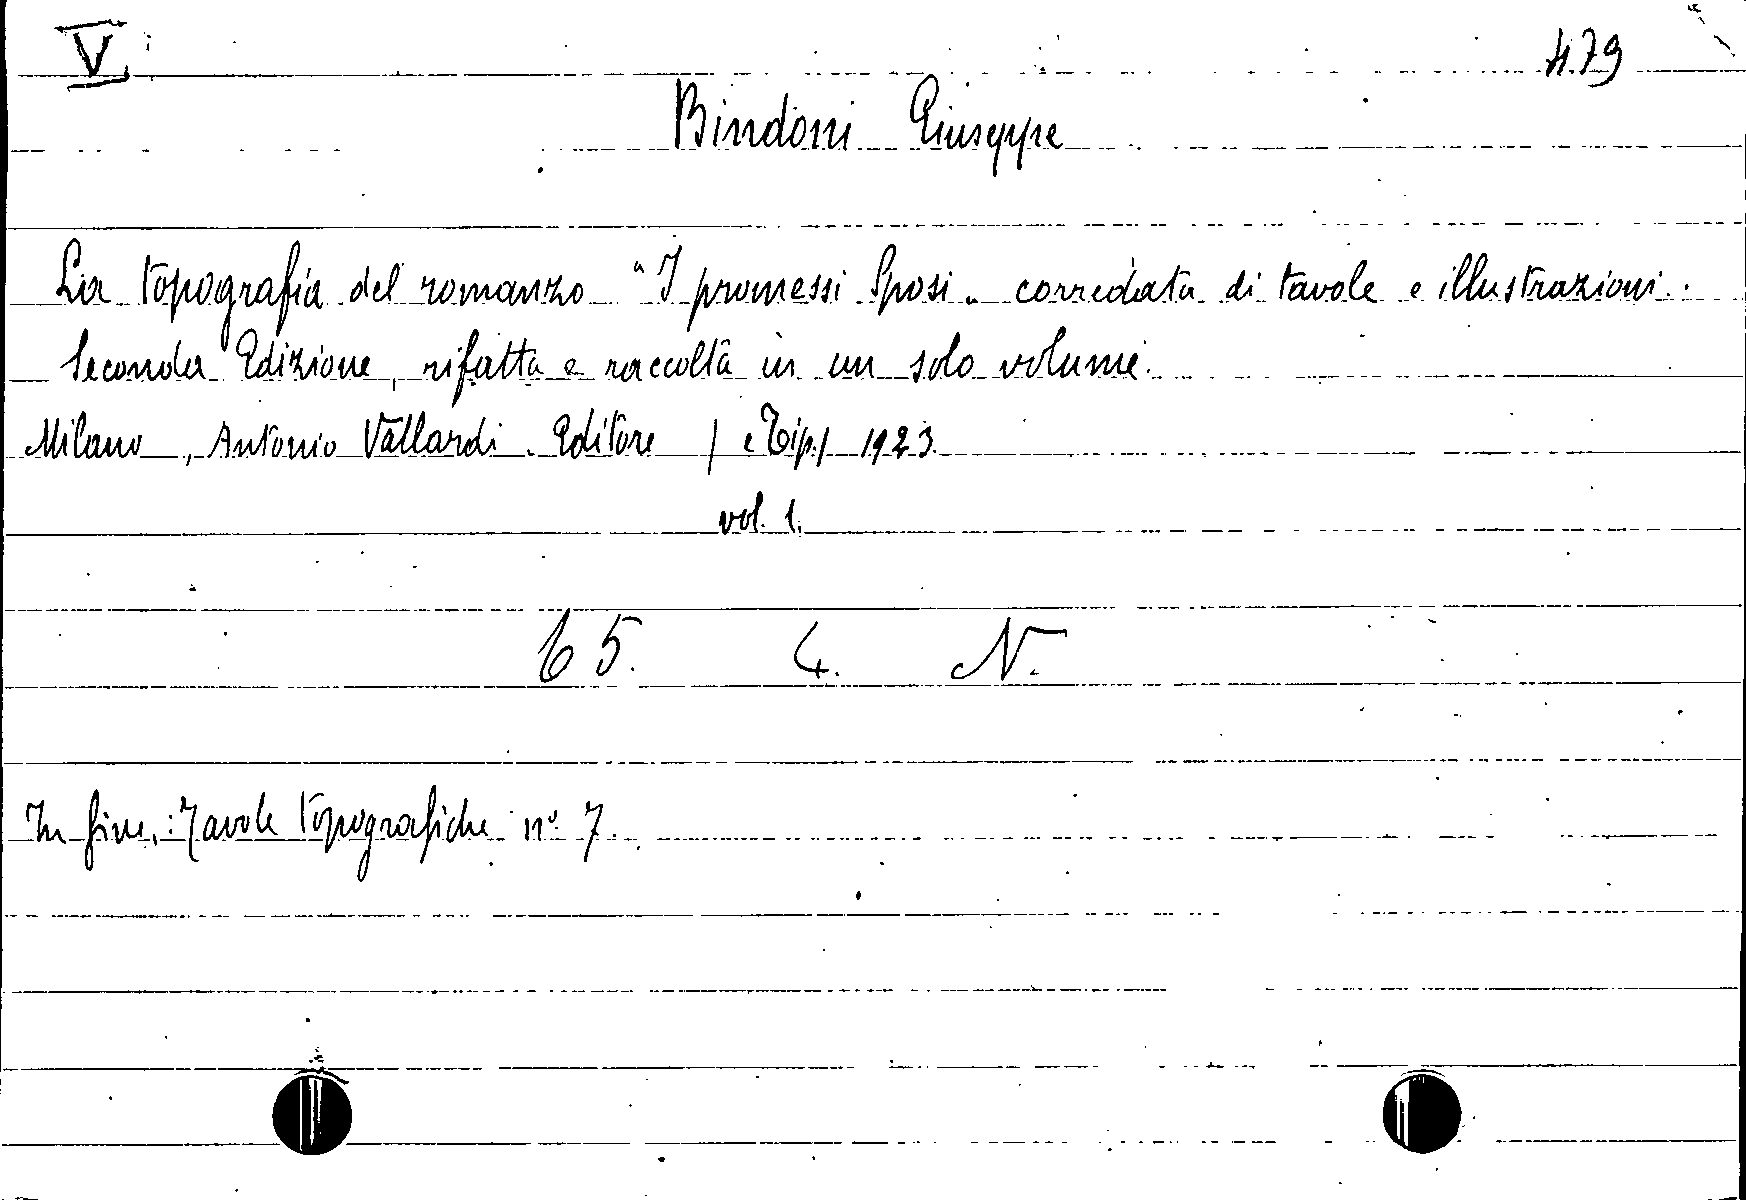 V
4.79
Bindoni Giuseppe
La topografia del romanzo "I promessi Sposi" corredata di tavole e illustrazioni.
Seconda Edizione, rifatta e raccolta in un solo volume.
Milano, Antonio Vallardi. Editore / e Tip./ 1923.
vol. 1.
65. 4. N.
In fine.: Tavole topografiche nº 7.